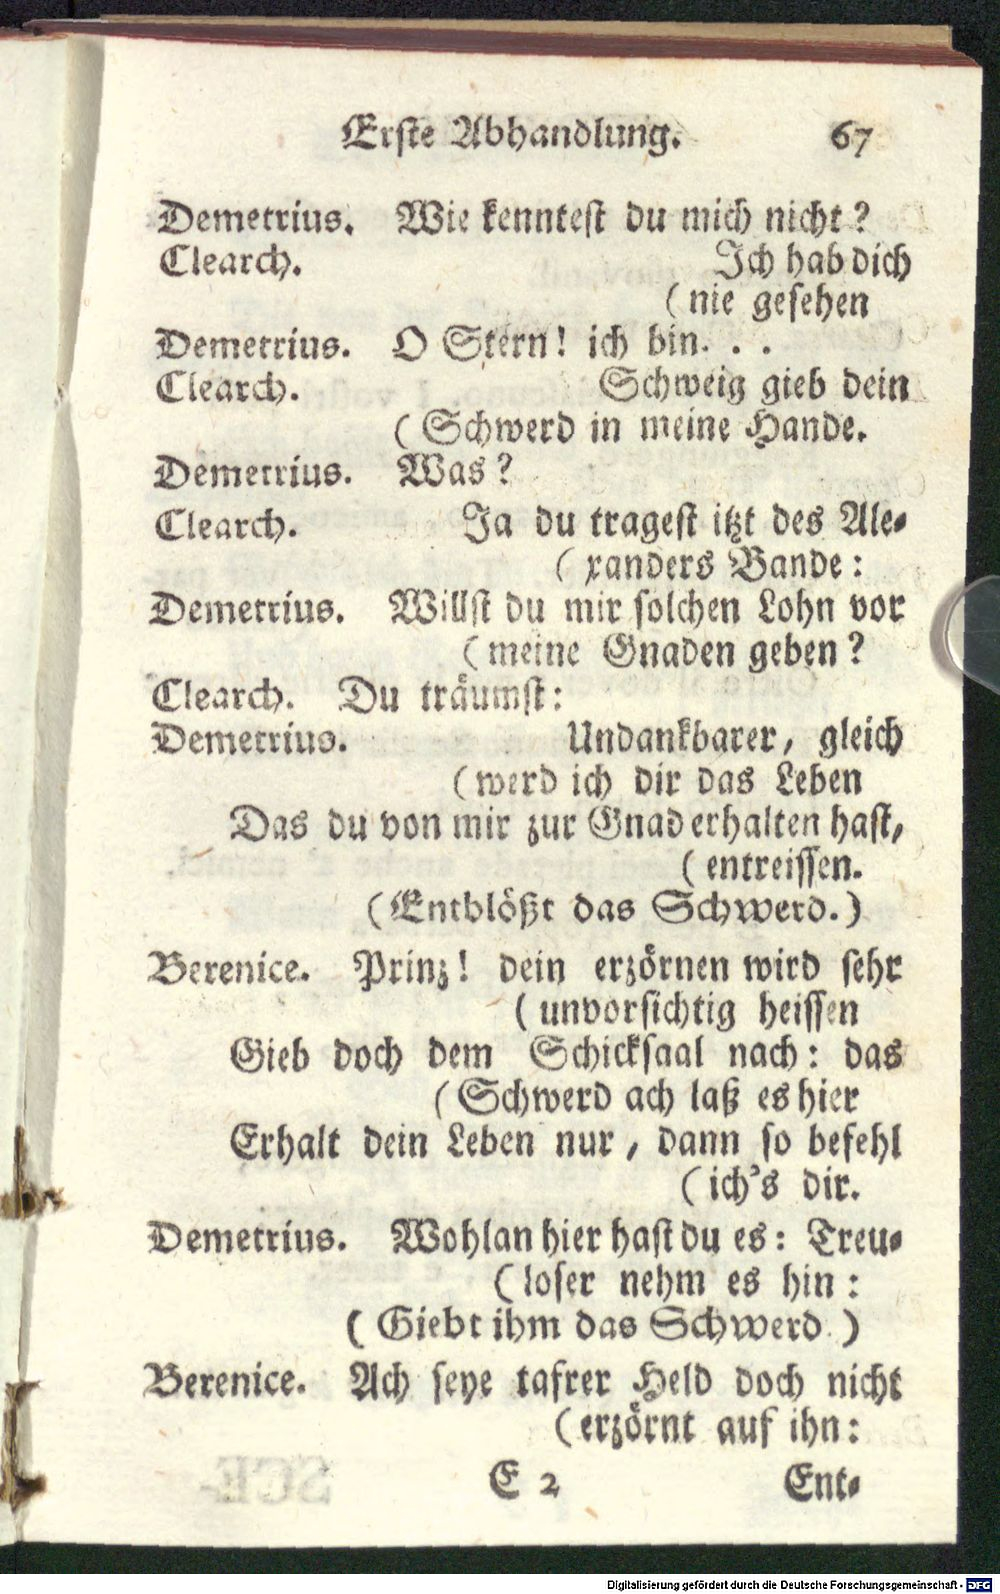 Erste Abhandlung. 67
Demetrius. Wie kenntest du mich nicht?
Clearch. Ich hab dich
(nie gesehen
Demetrius. O Stern! ich bin. . .
Clearch. Schweig gieb dein
(Schwerd in meine Hande.
Demetrius. Was?
Clearch. Ja du tragest itzt des Ale-
(xanders Bande:
Demetrius. Willst du mir solchen Lohn vor
(meine Gnaden geben?
Clearch. Du träumst:
Demetrius. Undankbarer, gleich
(werd ich dir das Leben
Das du von mir zur Gnad erhalten hast,
(entreissen.
(Entblößt das Schwerd.)
Berenice. Prinz! dein erzörnen wird sehr
(unvorsichtig heissen
Gieb doch dem Schicksaal nach: das
(Schwerd ach laß es hier
Erhalt dein Leben nur, dann so befehl
(ich's dir.
Demetrius. Wohlan hier hast du es: Treu-
(loser nehm es hin:
(Giebt ihm das Schwerd.)
Berenice. Ach seye tafrer Held doch nicht
(erzörnt auf ihn:
E 2 Ent-
Digitalisierung gefördert durch die Deutsche Forschungsgemeinschaft - DFG